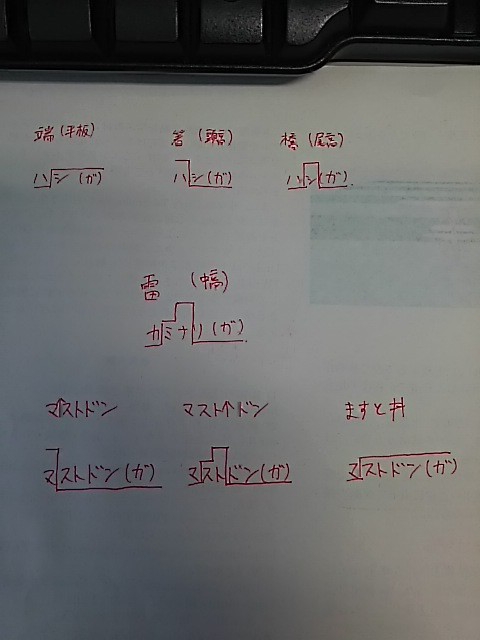 端(平板) 箸(頭高) 橋(尾高)
ハシ(ガ) ハシ(ガ) ハシ(ガ).
雷 (中高)
カミナリ(ガ).
マストドン マスト↑ドン ますと丼
マストドン(ガ) マストドン(ガ) マストドン(ガ)